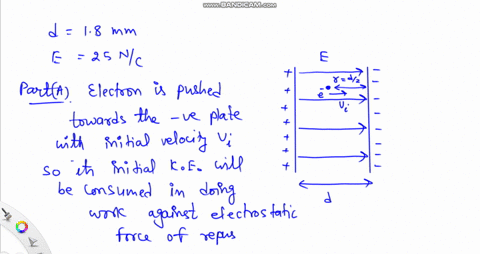 WWW.BANDICAM.COM
d = 1.8 mm
E = 25 N/C
Part(A) Electron is pushed
towards the -ve plate
with initial velocity Vi
so its initial K.E. will
be consumed in doing
work against electrostatic
force of repus
E
r = d/2
e-
Vi
d